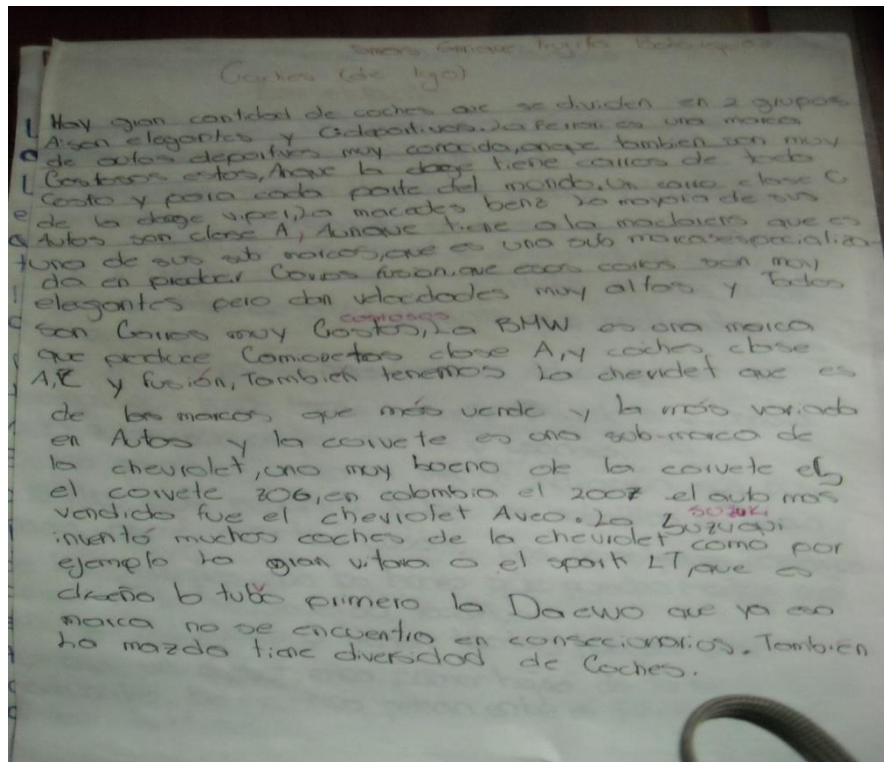 Coches (de lijo)
Hay gran cantidad de coches que se dividen en 2 grupos
A:son elegantes y C:deportivos. La Ferrari es una marca
de autos deportivos muy conocida, aunque tambien son muy
Costosos estos, Anque la doge tiene carros de todo
Costo y para cada parte del mondo. Un carro clase C
de la doge viper, La macedes benz La mayoria de sus
Autos son clase A, Aunque tiene a la maclarens que es
una de sus sub marcas, que es una sub marca especializa-
da en prodcir Carros fusion, que esos carros son muy
elegantes pero con velocidades muy altas y Todos
costosos
son Carros muy Costos, La BMW es una marca
que produce Camionetas clase A, y coches clase
A, C y fusión, Tambien tenemos La chevrolet que es
de las marcas que más vende y la más variada
en Autos y la corvete es una sub-marca de
la chevrolet, uno muy bueno de la corvete es
el corvete z06, en colombia el 2007 el auto mas
suzuki
vendido fue el chevrolet Aveo. La
invento muchos coches de la chevrolet como por
ejemplo La gran vitara o el spark LT, que es
diseño lo tubo primero la Daewo que ya esa
marca no se encuentra en consecionarios. Tambien
La mazda tiene diversidad de Coches.